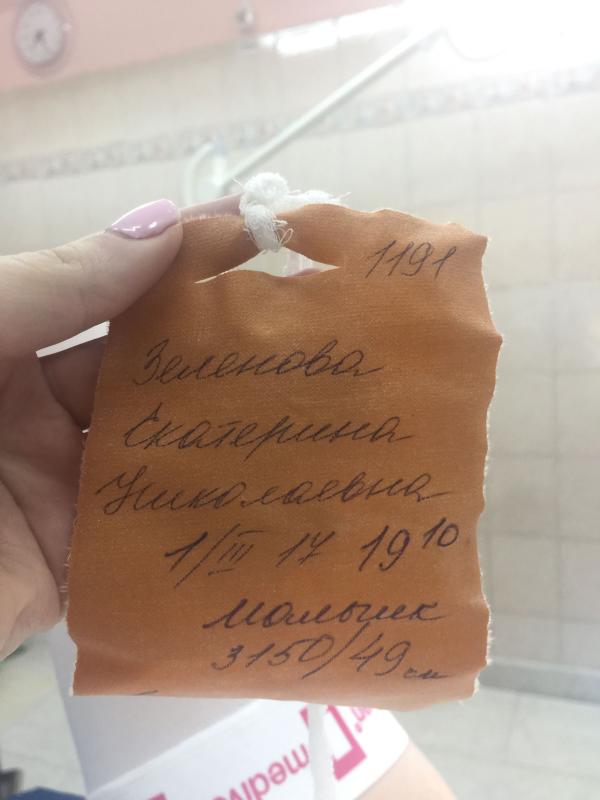 1191
Зеленова
Екатерина
Николаевна
1/III 17 19 10
мальчик
3150/49 см
mediven®